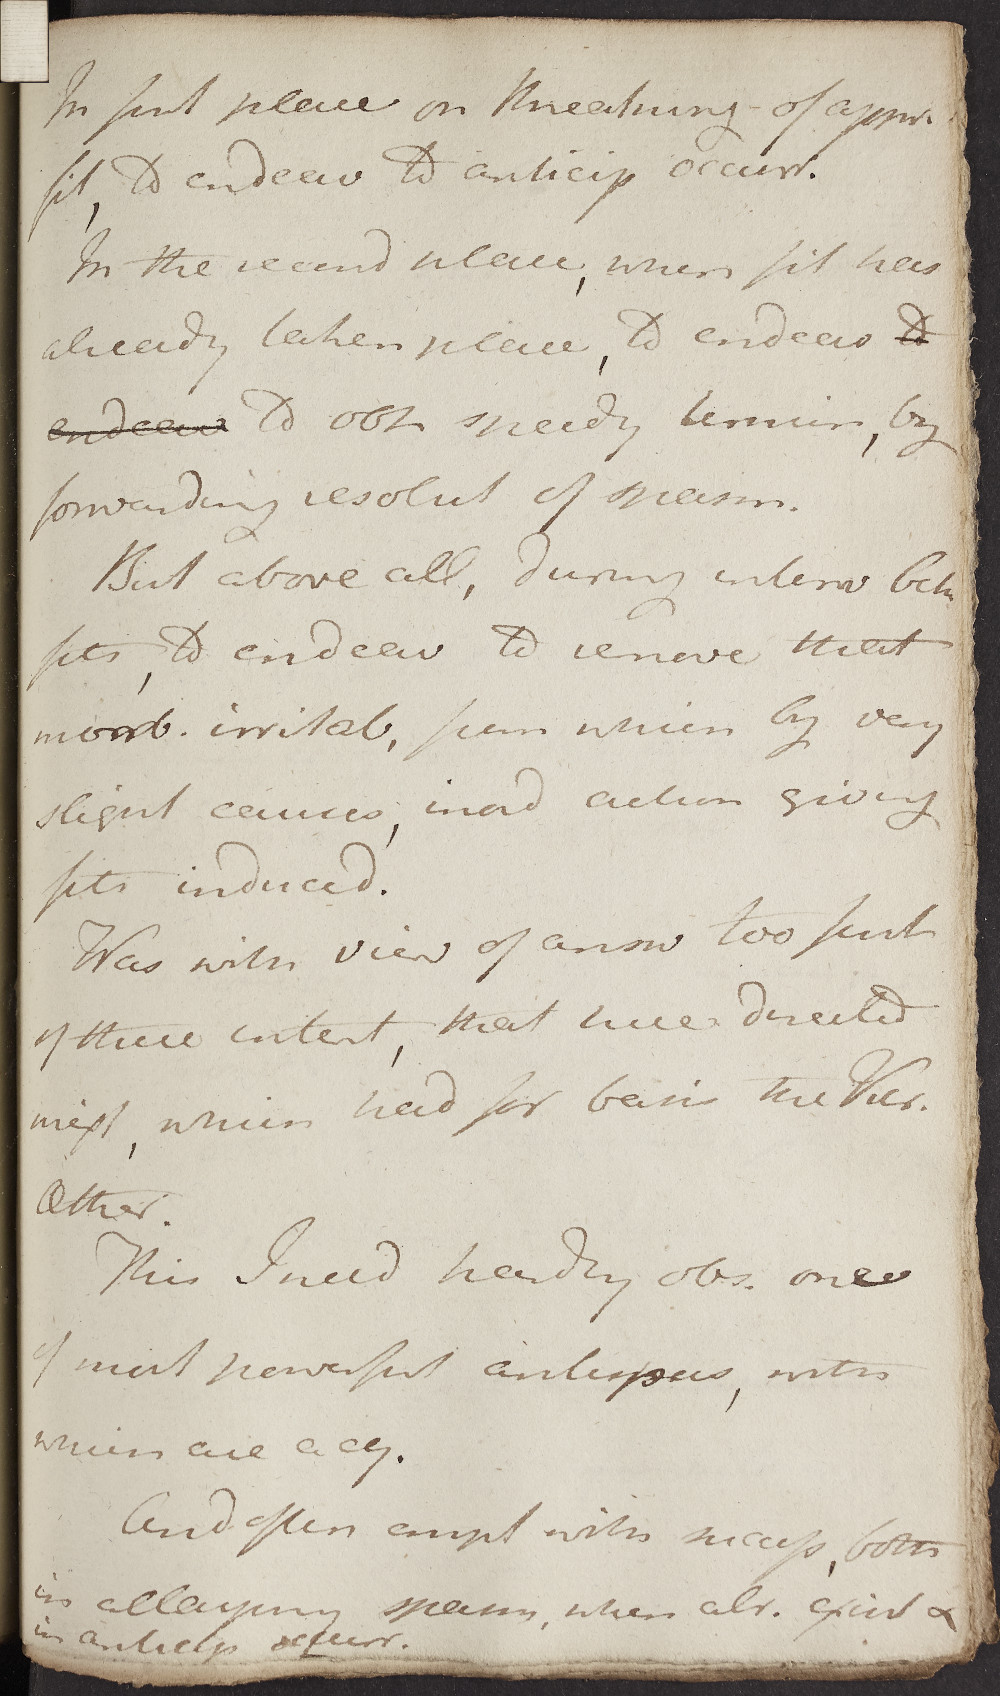 In first place on threatning of appr.
fit, to endeav to anticip occurr.
In the second place, when fit has
already taken place, to endeav to
endeav to obt speedy termin, by
forwarding resolut of spasm.
But above all, during interv betw
fits, to endeav to remove that
morb. irritab, from which by very
slight causes, inord action giving
fits induced.
Was with view of answ too first
of these intent, that have directed
mixt, which had for basis the Vitr.
Æther.
This I need hardly obs. one
of most powerful antispas, with
which are acq.
And often empl with success, both
in allaying spasm, when alr. exist &
in anticip occurr.